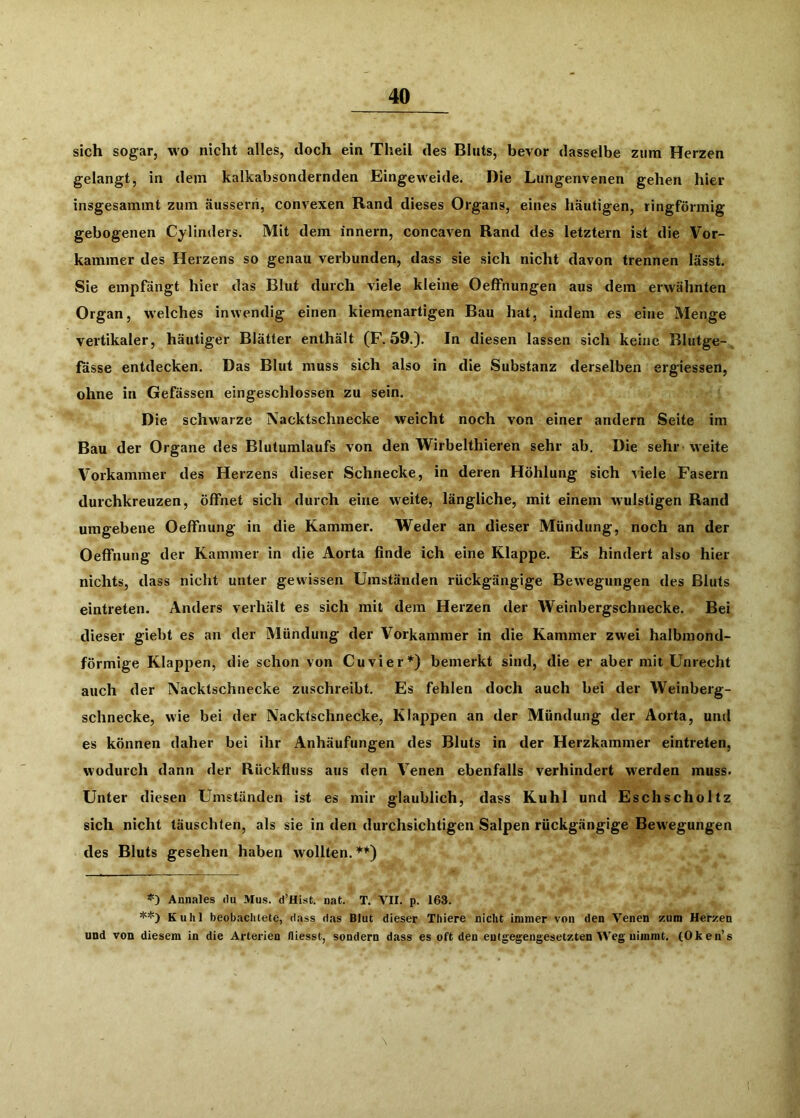 40
sich sogar, wo nicht alles, doch ein Theil des Bluts, bevor dasselbe zum Herzen
gelangt, in dem kalkabsondernden Eingeweide. Die Lungenvenen gehen hier
insgesammt zum äussern, convexen Rand dieses Organs, eines häutigen, ringförmig
gebogenen Cylinders. Mit dem innern, concaven Rand des letztern ist die Vor-
kammer des Herzens so genau verbunden, dass sie sich nicht davon trennen lässt.
Sie empfängt hier das Blut durch viele kleine Oeffnungen aus dem erwähnten
Organ, welches inwendig einen kiemenartigen Bau hat, indem es eine Menge
vertikaler, häutiger Blätter enthält (F. 59.). In diesen lassen sich keine Blutge-
fässe entdecken. Das Blut muss sich also in die Substanz derselben ergiessen,
ohne in Gefässen eingeschlossen zu sein.
Die schwarze Nacktschnecke weicht noch von einer andern Seite im
Bau der Organe des Blutumlaufs von den Wirbelthieren sehr ab. Die sehr weite
Vorkammer des Herzens dieser Schnecke, in deren Höhlung sich viele Fasern
durchkreuzen, öffnet sich durch eine weite, längliche, mit einem wulstigen Rand
umgebene Oeffnung in die Kammer. Weder an dieser Mündung, noch an der
Oeffnung der Kammer in die Aorta finde ich eine Klappe. Es hindert also hier
nichts, dass nicht unter gewissen Umständen rückgängige Bewegungen des Bluts
eintreten. Anders verhält es sich mit dem Herzen der Weinbergschnecke. Bei
dieser giebt es an der Mündung der Vorkammer in die Kammer zwei halbmond-
förmige Klappen, die schon von Cuvier*) bemerkt sind, die er aber mit Unrecht
auch der Nacktschnecke zuschreibt. Es fehlen doch auch bei der Weinberg-
schnecke, wie bei der Nacktschnecke, Klappen an der Mündung der Aorta, und
es können daher bei ihr Anhäufungen des Bluts in der Herzkammer eintreten,
wodurch dann der Rückfluss aus den Venen ebenfalls verhindert werden muss.
Unter diesen Umständen ist es mir glaublich, dass Kuhl und Eschscholtz
sich nicht täuschten, als sie in den durchsichtigen Salpen rückgängige Bewegungen
des Bluts gesehen haben wollten.**)
*) Annales du Mus. d'Hist. nat. T. VII. p. 163.
**) Kuhl beobachtete, dass das Blut dieser Thiere nicht immer von den Venen zum Herzen
und von diesem in die Arterien fliesst, sondern dass es oft den entgegengesetzten Weg nimmt. (Oken's